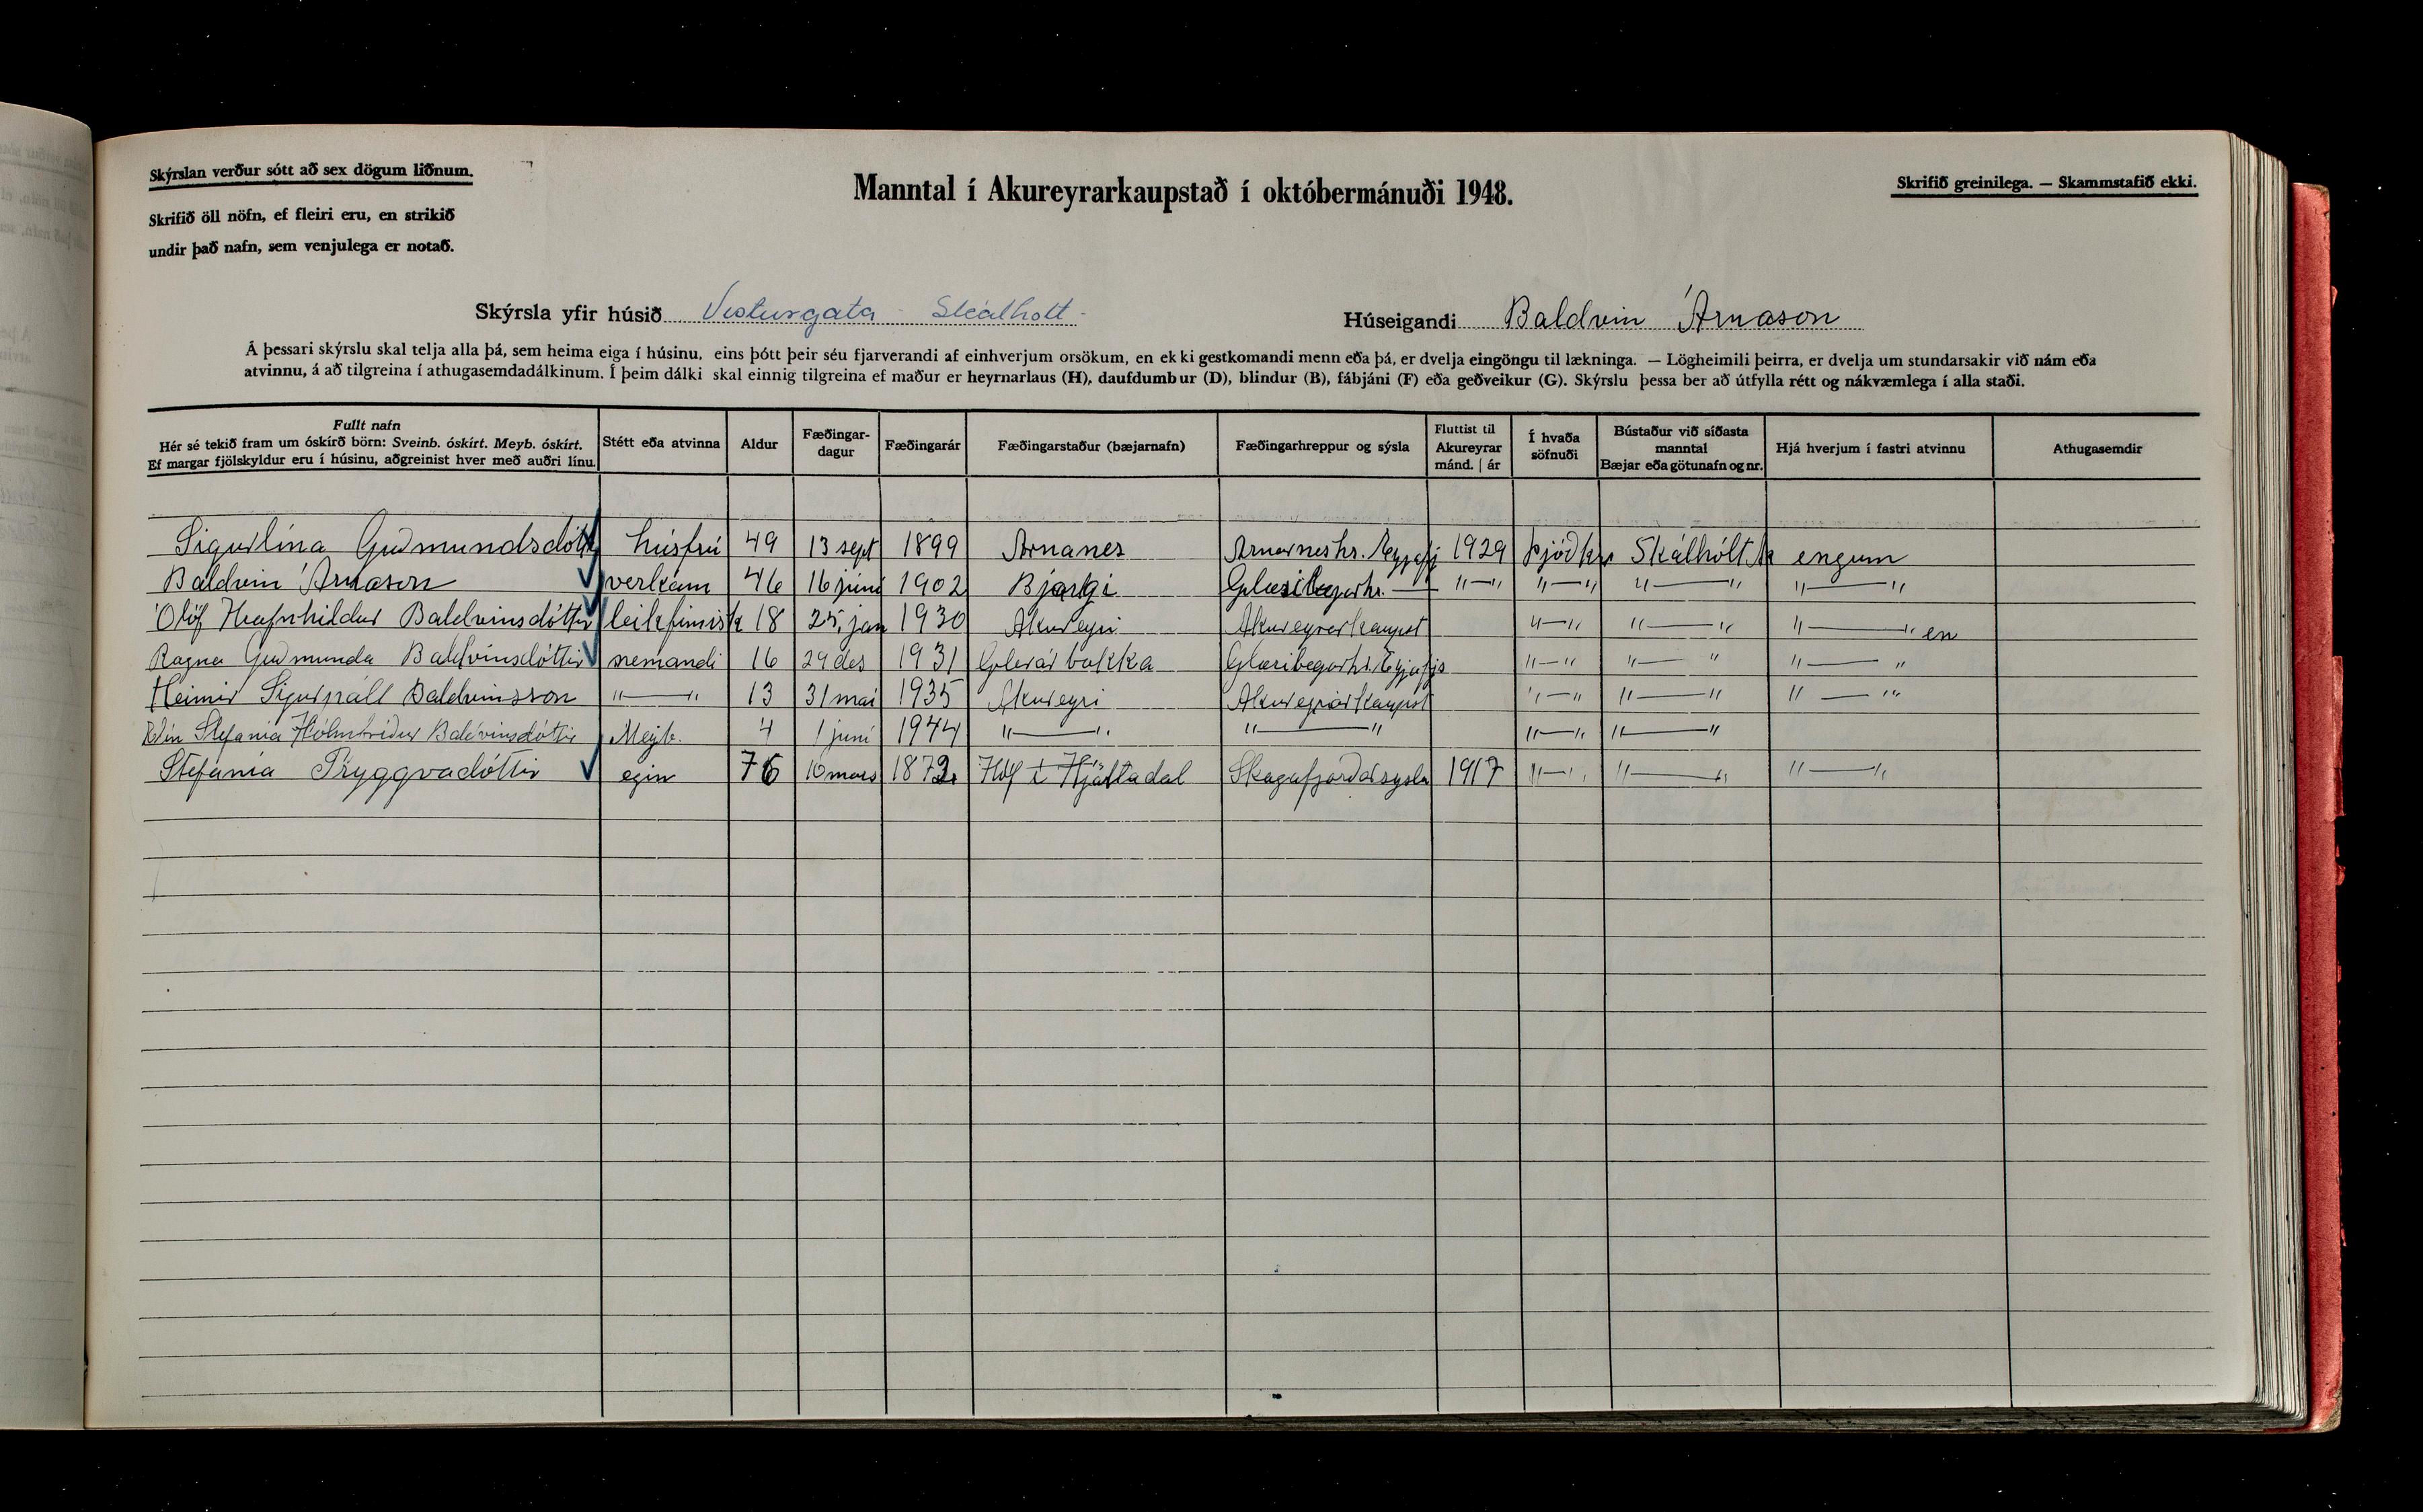 Skýrslan verður sótt að sex dögum liðnum.
Skrifið öll nöfn, ef fleiri eru, en strikið
undir það nafn, sem venjulega er notað.
Manntal í Akureyrarkaupstað í októbermánuði 1948.
Skrifið greinilega. — Skammstafið ekki.
Skýrsla yfir húsið Vesturgata - Skálholt -
Húseigandi Baldvin Árnason
Á þessari skýrslu skal telja alla þá, sem heima eiga í húsinu, eins þótt þeir séu fjarverandi af einhverjum orsökum, en ekki gestkomandi menn eða þá, er dvelja eingöngu til lækninga. — Lögheimili þeirra, er dvelja um stundarsakir við nám eða
atvinnu, á að tilgreina í athugasemdadálkinum. Í þeim dálki skal einnig tilgreina ef maður er heyrnarlaus (H), daufdumbur (D), blindur (B), fábjáni (F) eða geðveikur (G). Skýrslu þessa ber að útfylla rétt og nákvæmlega í alla staði.
Fullt nafn
Hér sé tekið fram um óskírð börn: Sveinb. óskírt. Meyb. óskírt.
Ef margar fjölskyldur eru í húsinu, aðgreinist hver með auðri línu.
Stétt eða atvinna
Aldur
Fæðingar-
dagur
Fæðingarár
Fæðingarstaður (bæjarnafn)
Fæðingarhreppur og sýsla
Fluttist til
Akureyrar
mánd. | ár
Í hvaða
söfnuði
Bústaður við síðasta
manntal
Bæjar eða götunafn og nr.
Hjá hverjum í fastri atvinnu
Athugasemdir
Sigurlína Guðmundsdótt húsfrú 49 13 sept 1899 Arnanes Arnarneshr. Eyjafj 1929 þjóðk Skálhólt engum
Baldvin Árnason verkam 46 16 júni 1902 Bjargi Glæsibæjarhr. — "—" "—" "—" "—"
Ólöf Hrafnhildur Baldvinsdóttir 18 25. jan 1930 Akureyri Akureyrarkaupst "—" "—" "—" en
Ragna Guðmunda Baldvinsdóttir nemandi 16 29 des 1931 Glerár bakka Glæsibæjarhr. Eyjafjs "—" "—" "—"
Heimir Sigurpáll Baldvinsson "—" 13 31 mai 1935 Akureyri Akureyrarkaupst "—" "—" "—"
Stefanía Hólmfríður Baldvinsdóttir Meyb. 4 1 júni 1944 "—" "—" "—" "—"
Stefanía Tryggvadóttir 76 10 mars 1872 Hóf í Hjaltadal Skagafjarðarsýsla 1917 "—" "—" "—"